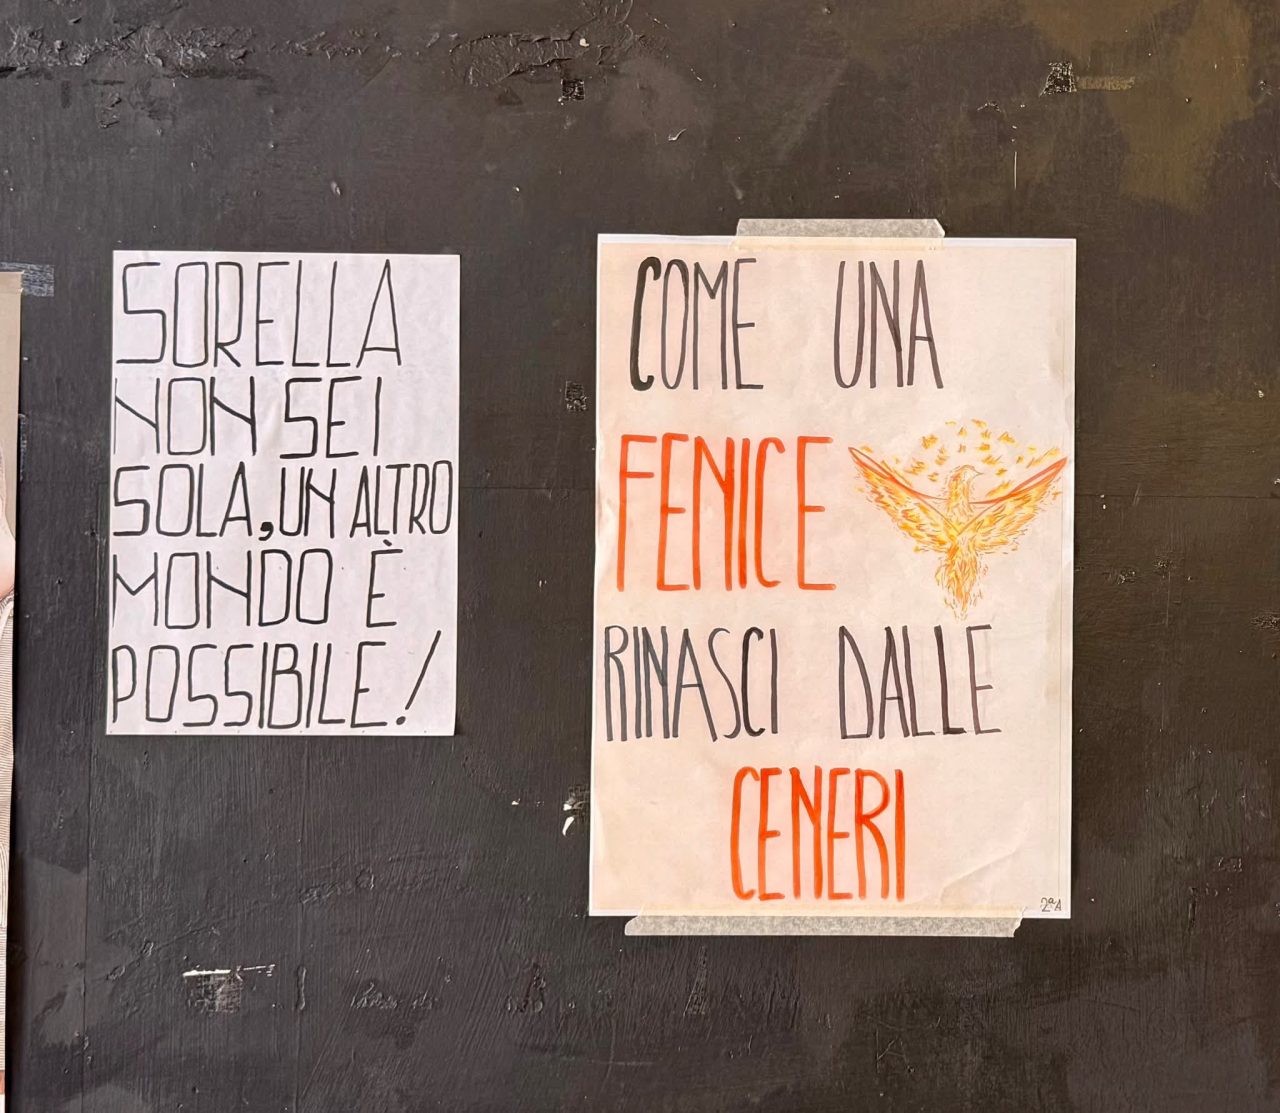 SORELLA
NON SEI
SOLA, UN ALTRO
MONDO È
POSSIBILE!
COME UNA
FENICE
RINASCI DALLE
CENERI
2ªA